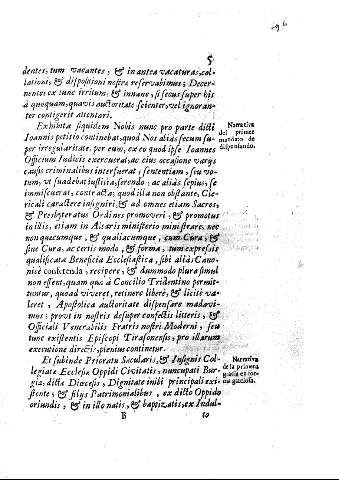 5
dentes, tum vacantes, & in antea vacaturas, col-
lationi, & dispositioni nostræ reservabimus; Decer-
nente ex tunc irritum, & innane, si secus super his
à quoquam, quavis auctoritate scienter, vel ignoran-
ter contigerit attentari.
Exhibita siquidem Nobis nunc pro parte dicti
Ioannis petitio continebat, quod Nos aliàs secum su-
per irregularitate, per eum, ex eo quod ipse Ioannes
Officium Iudicis exercuerat, ac eius occasione varijs
causis criminalibus interfuerat, sententiam, seu vo-
tum, ut suadebat iustitia, ferendo; ac aliàs sæpius, se
immiscuerat, contracta; quod illa non obstante, Cle-
ricali caractere insigniri, & ad omnes etiam Sacros,
& Presbyteratus Ordines promoveri, & promotus
in illis, etiam in Altaris ministerio ministrare, nec
non quæcumque, & qualiacumque, cum Cura, &
sine Cura, ac certis modo, & forma, tum expressis
qualificata Beneficia Ecclesiastica, sibi aliàs Cano-
nicè conferenda, recipere, & dummodo plura simul
non essent, quam quæ à Concilio Tridentino permit-
tuntur, quoad viveret, retinere liberè, & licitè va-
leret, Apostolica auctoritate dispensare madavi-
mus; prout in nostris desuper confectis litteris, &
Officiali Venerabilis Fratris nostri Moderni, seu
tunc existentis Episcopi Tirasonensis, pro illarum
executione directis, plenius continetur.
Et subinde Prioratu Sæcularis, & Insignis Col-
legiatæ Ecclesiæ Oppidi Civitatis, nuncupati Bur-
gia, dictæ Diœcesis, Dignitate inibi principali exi-
stente, & filijs Patrimonialibus, ex dicto Oppido
oriundis, & in illo natis, & baptizatis, ex Indul-
B to
Narrativa
del primer
mandato de
dispensando.
Narrativa
de la primera
gratia en for-
ma gratiosa.